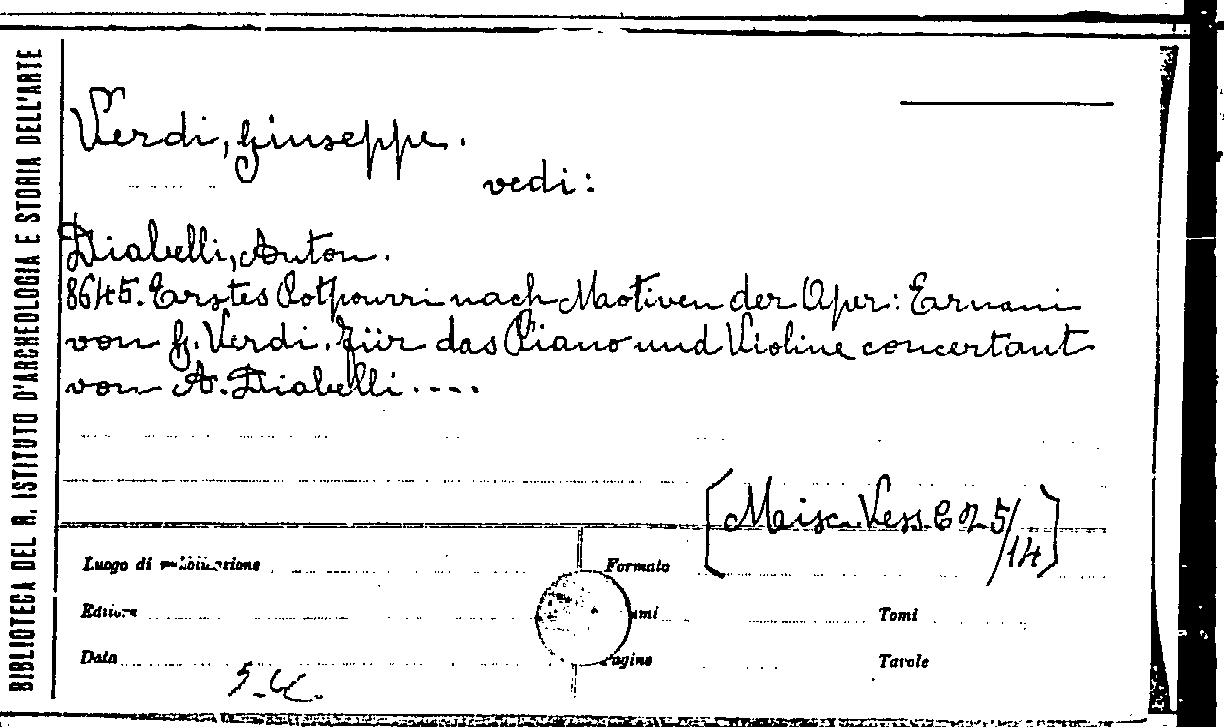 BIBLIOTECA DEL R. ISTITUTO D'ARCHEOLOGIA E STORIA DELL'ARTE
Verdi, Giuseppe.
vedi:
Diabelli, Anton.
8645. Erstes Potpourri nach Motiven der Oper: Ernani
von G. Verdi. für das Piano und Violine concertant
von A. Diabelli ....
[Misc. Vess. C 25/14]
Luogo di pubblicazione
Formato
Editore
Tomi
Data
Pagine
Tavole